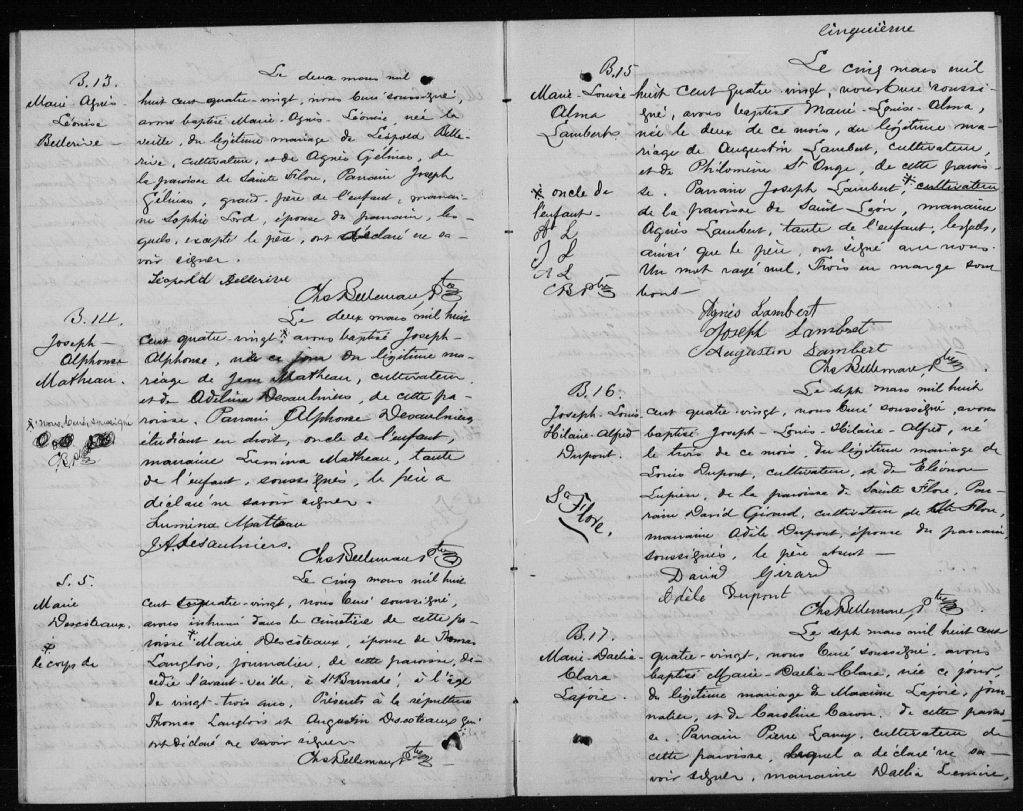 B. 13.
Marie-Agnès
Léonise
Bellerive
Le deux mars mil
huit cent quatre-vingt, nous Curé soussigné,
avons baptisé Marie-Agnès-Léonise, née la
veille, du légitime mariage de Léopold Belle-
rive, cultivateur, et de Agnès Gélinas, de
la paroisse de Sainte Flore, Parrain Joseph
Gélinas, grand-père de l'enfant, marrai-
ne Sophie Lord, épouse du parrain, les-
quels, excepté le père, ont déclaré ne sa-
voir signer.
Léopold Bellerive
Chs Bellemare, Ptre
B. 14.
Joseph-
Alphonse
Matheau.
x nous, Curé, soussigné
C. B. Ptre
Le deux mars mil huit
cent quatre-vingt x avons baptisé Joseph-
Alphonse, né ce jour du légitime ma-
riage de Jean Matheau, cultivateur
et de Adelina Desaulniers, de cette pa-
roisse. Parrain Alphonse Desaulniers
étudiant en droit, oncle de l'enfant,
marraine Lumina Matheau, tante
de l'enfant, soussignés, le père a
déclaré ne savoir signer.
Lumina Matteau
J A Desaulniers.
Chs Bellemare, Ptre
S. 5.
Marie
Descôteaux.
x
le corps de
Le cinq mars mil huit
cent quatre-vingt, nous Curé soussigné,
avons inhumé dans le cimetière de cette pa-
roisse x Marie Descôteaux, épouse de Thomas
Langlois, journalier, de cette paroisse, dé-
cédée l'avant-veille, à St Barnabé, à l'âge
de vingt-trois ans, Présents à la sépulture
Thomas Langlois et Augustin Descoteaux qui
ont déclaré ne savoir signer
Chs Bellemare, Ptre
cinquième
B. 15
Marie-Louise
Alma
Lambert
x oncle de
l'enfant.
A L
J L
A L
C B Ptre
Le cinq mars mil
huit cent quatre vingt, nous Curé soussi-
gné, avons baptisé Marie-Louise-Alma,
née le deux de ce mois, du légitime ma-
riage de Augustin Lambert, cultivateur,
et de Philomène St Onge, de cette parois-
se. Parrain Joseph Lambert, x cultivateur
de la paroisse de Saint Léon, marraine
Agnès Lambert, tante de l'enfant, lesquels,
ainsi que le père, ont signé avec nous.
Un mot rayé nul, Trois en marge sont
bons
Agnès Lambert
Joseph Lambert
Augustin Lambert
Chs Bellemare, Ptre
B. 16.
Joseph-Louis
Hilaire-Alfred
Dupont.
Ste Flore.
Le sept mars mil huit
cent quatre-vingt, nous Curé soussigné, avons
baptisé Joseph-Louis-Hilaire-Alfred, né
le trois de ce mois, du légitime mariage de
Louis Dupont, cultivateur, et de Eléonore
Lupien, de la paroisse de Sainte Flore, Par-
rain David Girard, cultivateur de Ste Flore,
marraine Adèle Dupont, épouse du parrain,
soussignés, le père absent
David Girard
Adèle Dupont
Chs Bellemare, Ptre
B. 17.
Marie-Daelia
Clara
Lajoie.
Le sept mars mil huit cent
quatre-vingt, nous Curé soussigné, avons
baptisé Marie-Daelia-Clara, née ce jour,
du légitime mariage de Maxime Lajoie, jour-
nalier, et de Caroline Caron, de cette parois-
se. Parrain Pierre Lamy, cultivateur de
cette paroisse, lequel a déclaré ne sa-
voir signer, marraine Daelia Lemire,